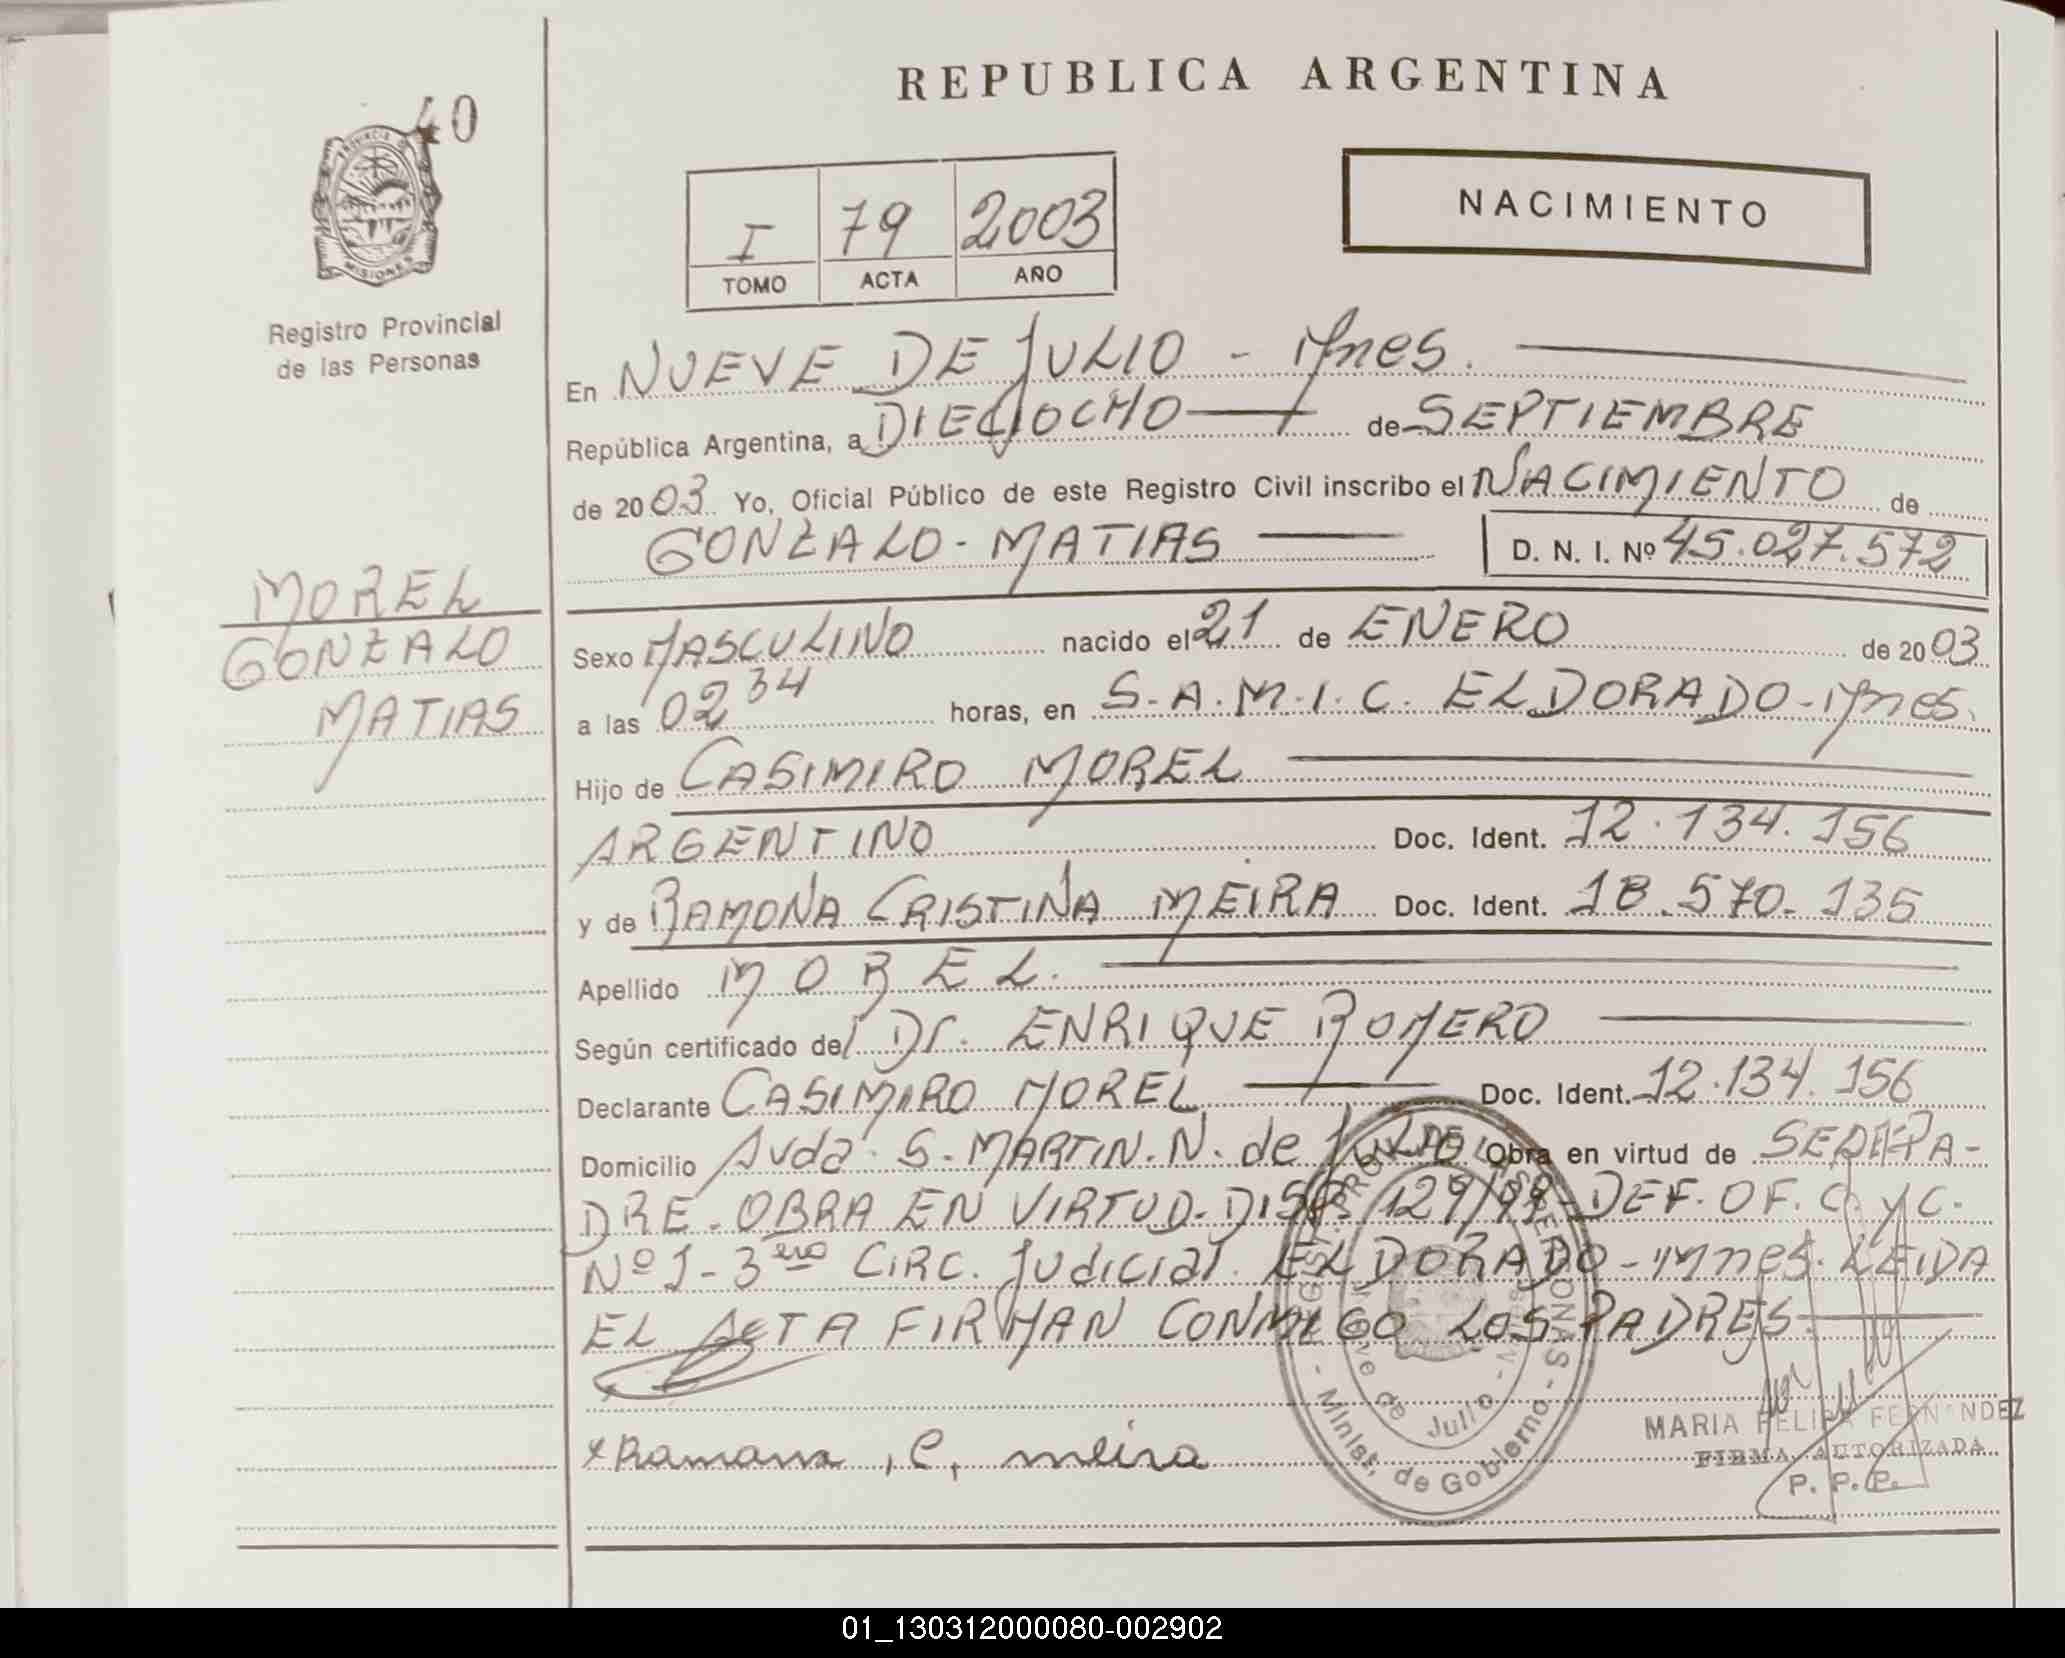 REPUBLICA ARGENTINA
40
PROVINCIA DE
MISIONES
Registro Provincial
de las Personas
I 79 2003
TOMO ACTA AÑO
NACIMIENTO
En NUEVE DE JULIO - Mnes.
República Argentina, a DIECIOCHO de SEPTIEMBRE
de 2003 Yo, Oficial Público de este Registro Civil inscribo el NACIMIENTO de
GONZALO - MATIAS D. N. I. Nº 45.027.572
MOREL
GONZALO
MATIAS
Sexo MASCULINO nacido el 21 de ENERO de 2003
a las 02 34 horas, en S.A.M.I.C. ELDORADO - Mnes.
Hijo de CASIMIRO MOREL
ARGENTINO Doc. Ident. 12.134.156
y de RAMONA CRISTINA MEIRA Doc. Ident. 18.570.135
Apellido MOREL.
Según certificado del Dr. ENRIQUE ROMERO
Declarante CASIMIRO MOREL Doc. Ident. 12.134.156
Domicilio Avda. S. MARTIN. N. de JULIO Obra en virtud de SER PA-
DRE. OBRA EN VIRTUD. DISP. 129/99 - DEF. OF. C. y C.
Nº 1 - 3era CIRC. Judicial. ELDORADO - Mnes. LEIDA
EL ACTA FIRMAN CONMIGO LOS PADRES.
x Ramona, C, meira
Nueve de Julio - Mnes
- Minist. de Gobierno -
MARIA FELISA FERNANDEZ
FIRMA AUTORIZADA
P. P. P.
01_130312000080-002902